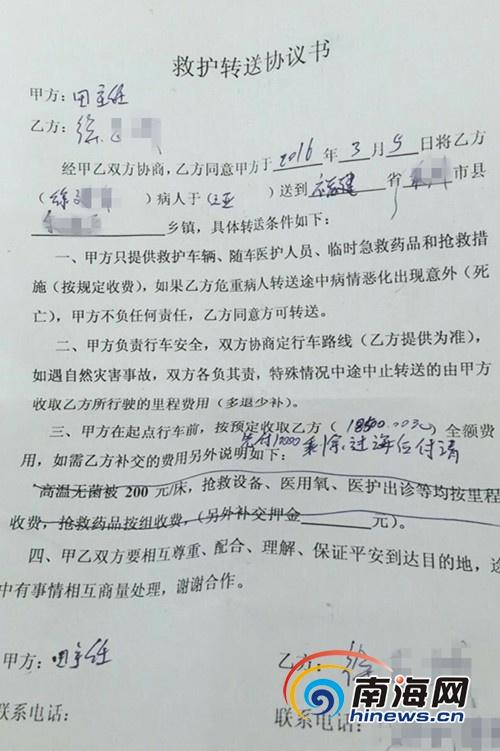 救护转送协议书
甲方：田主任
乙方：徐
经甲乙双方协商，乙方同意甲方于2016年3月5日将乙方
（徐）病人于（三亚）送到福建省市县
乡镇，具体转送条件如下：
一、甲方只提供救护车辆、随车医护人员、临时急救药品和抢救措
施（按规定收费），如果乙方危重病人转送途中病情恶化出现意外（死
亡），甲方不负任何责任，乙方同意方可转送。
二、甲方负责行车安全，双方协商定行车路线（乙方提供为准），
如遇自然灾害事故，双方各负其责，特殊情况中途中止转送的由甲方
收取乙方所行驶的里程费用（多退少补）。
三、甲方在起点行车前，按预定收取乙方（18500.00元）全额费
先付10000剩余过海后付清
用，如需乙方补交的费用另外说明如下：
高温无菌被200元/床，抢救设备、医用氧、医护出诊等均按里程
收费，抢救药品按组收费，（另外补交押金______元）。
四、甲乙双方要相互尊重、配合、理解、保证平安到达目的地，途
中有事情相互商量处理，谢谢合作。
甲方：田主任
乙方：徐
联系电话：
联系电话：
南海网
hinews.cn